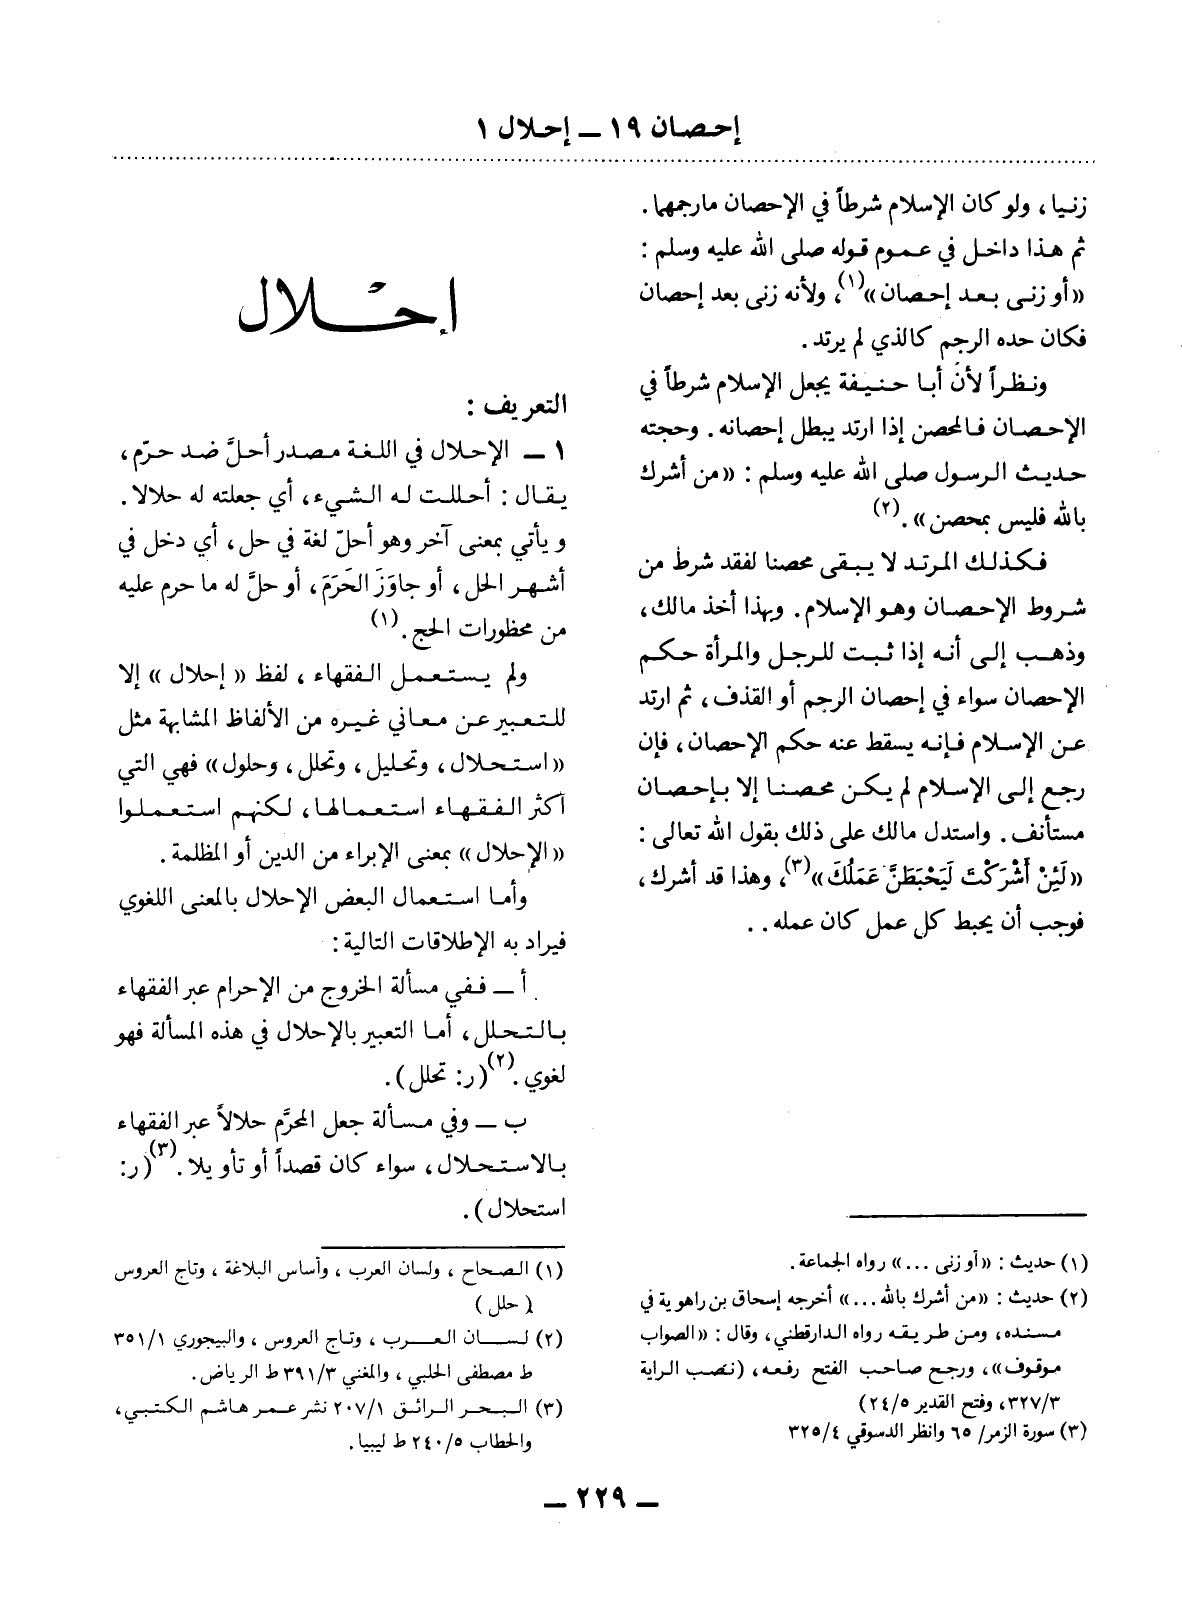 إحصان ١٩ ــ إحلال ١
زنيا، ولو كان الإسلام شرطاً في الإحصان مارجمهما.
ثم هذا داخل في عموم قوله صلى الله عليه وسلم :
«أو زنى بعد إحصان»(١)، ولأنه زنى بعد إحصان
فكان حده الرجم كالذي لم يرتد.
ونظراً لأن أبا حنيفة يجعل الإسلام شرطاً في
الإحصان فالمحصن إذا ارتد يبطل إحصانه. وحجته
حديث الرسول صلى الله عليه وسلم : «من أشرك
بالله فليس بمحصن». (٢)
فكذلك المرتد لا يبقى محصنا لفقد شرط من
شروط الإحصان وهو الإسلام. وبهذا أخذ مالك،
وذهب إلى أنه إذا ثبت للرجل والمرأة حكم
الإحصان سواء في إحصان الرجم أو القذف، ثم ارتد
عن الإسلام فإنه يسقط عنه حكم الإحصان، فإن
رجع إلى الإسلام لم يكن محصنا إلا بإحصان
مستأنف. واستدل مالك على ذلك بقول الله تعالى :
«لَئِنْ أَشْرَكْتَ لَيَحْبَطَنَّ عَمَلُكَ»(٣)، وهذا قد أشرك،
فوجب أن يحبط كل عمل كان عمله..
(١) حديث : «أو زنى ...» رواه الجماعة.
(٢) حديث : «من أشرك بالله ...» أخرجه إسحاق بن راهوية في
مسنده، ومن طريقه رواه الدارقطني، وقال : «الصواب
موقوف»، ورجح صاحب الفتح رفعه، (نصب الراية
٣٢٧/٣، وفتح القدير ٢٤/٥)
(٣) سورة الزمر/ ٦٥ وانظر الدسوقي ٣٢٥/٤
إحْلال
التعريف :
١ ــ الإحلال في اللغة مصدر أحلَّ ضد حرّم،
يقال : أحللت له الشيء، أي جعلته له حلالا.
ويأتي بمعنى آخر وهو أحلّ لغة في حل، أي دخل في
أشهر الحل، أو جاوَزَ الحَرَمَ، أو حلَّ له ما حرم عليه
من محظورات الحج. (١)
ولم يستعمل الفقهاء، لفظ «إحلال» إلا
للتعبير عن معاني غيره من الألفاظ المشابهة مثل
«استحلال، وتحليل، وتحلل، وحلول» فهي التي
أكثر الفقهاء استعمالها، لكنهم استعملوا
«الإحلال» بمعنى الإبراء من الدين أو المظلمة.
وأما استعمال البعض الإحلال بالمعنى اللغوي
فيراد به الإطلاقات التالية :
أ ــ ففي مسألة الخروج من الإحرام عبر الفقهاء
بالتحلل، أما التعبير بالإحلال في هذه المسألة فهو
لغوي. (٢) (ر: تحلل).
ب ــ وفي مسألة جعل المحرَّم حلالاً عبر الفقهاء
بالاستحلال، سواء كان قصداً أو تأويلا. (٣) (ر:
استحلال).
(١) الصحاح، ولسان العرب، وأساس البلاغة، وتاج العروس
( حلل )
(٢) لسان العرب، وتاج العروس، والبيجوري ٣٥١/١
ط مصطفى الحلبي، والمغني ٣٩١/٣ ط الرياض.
(٣) البحر الرائق ٢٠٧/١ نشر عمر هاشم الكتبي،
والحطاب ٢٤٠/٥ ط ليبيا.
ــ ٢٢٩ ــ